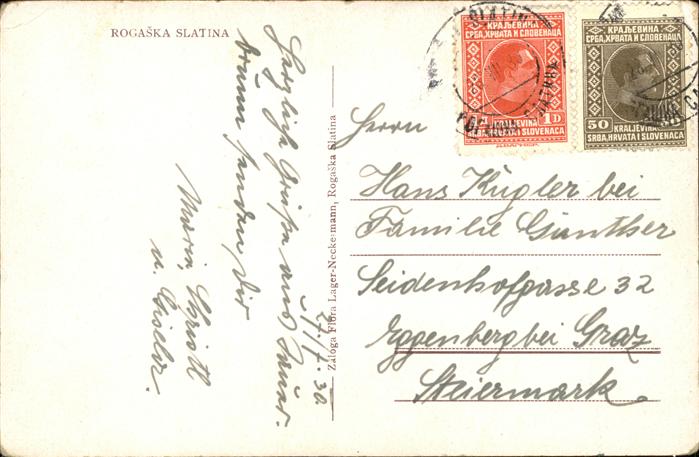 ROGAŠKA SLATINA
Herzliche Grüße aus Sauer-
brunn senden Dir
Maria, Christl
u. Gisela.
27./7. 30.
Založga Flora Lager-Neckermann, Rogaška Slatina
КРАЉЕВИНА
СРБА, ХРВАТА И СЛОВЕНАЦА
1D
KRALJEVINA
SRBA, HRVATA I SLOVENACA
КРАЉЕВИНА
СРБА, ХРВАТА И СЛОВЕНАЦА
50
KRALJEVINA
SRBA, HRVATA I SLOVENACA
Herrn
Hans Kugler bei
Familie Günther
Seidenhofgasse 32
Eggenberg bei Graz
Steiermark